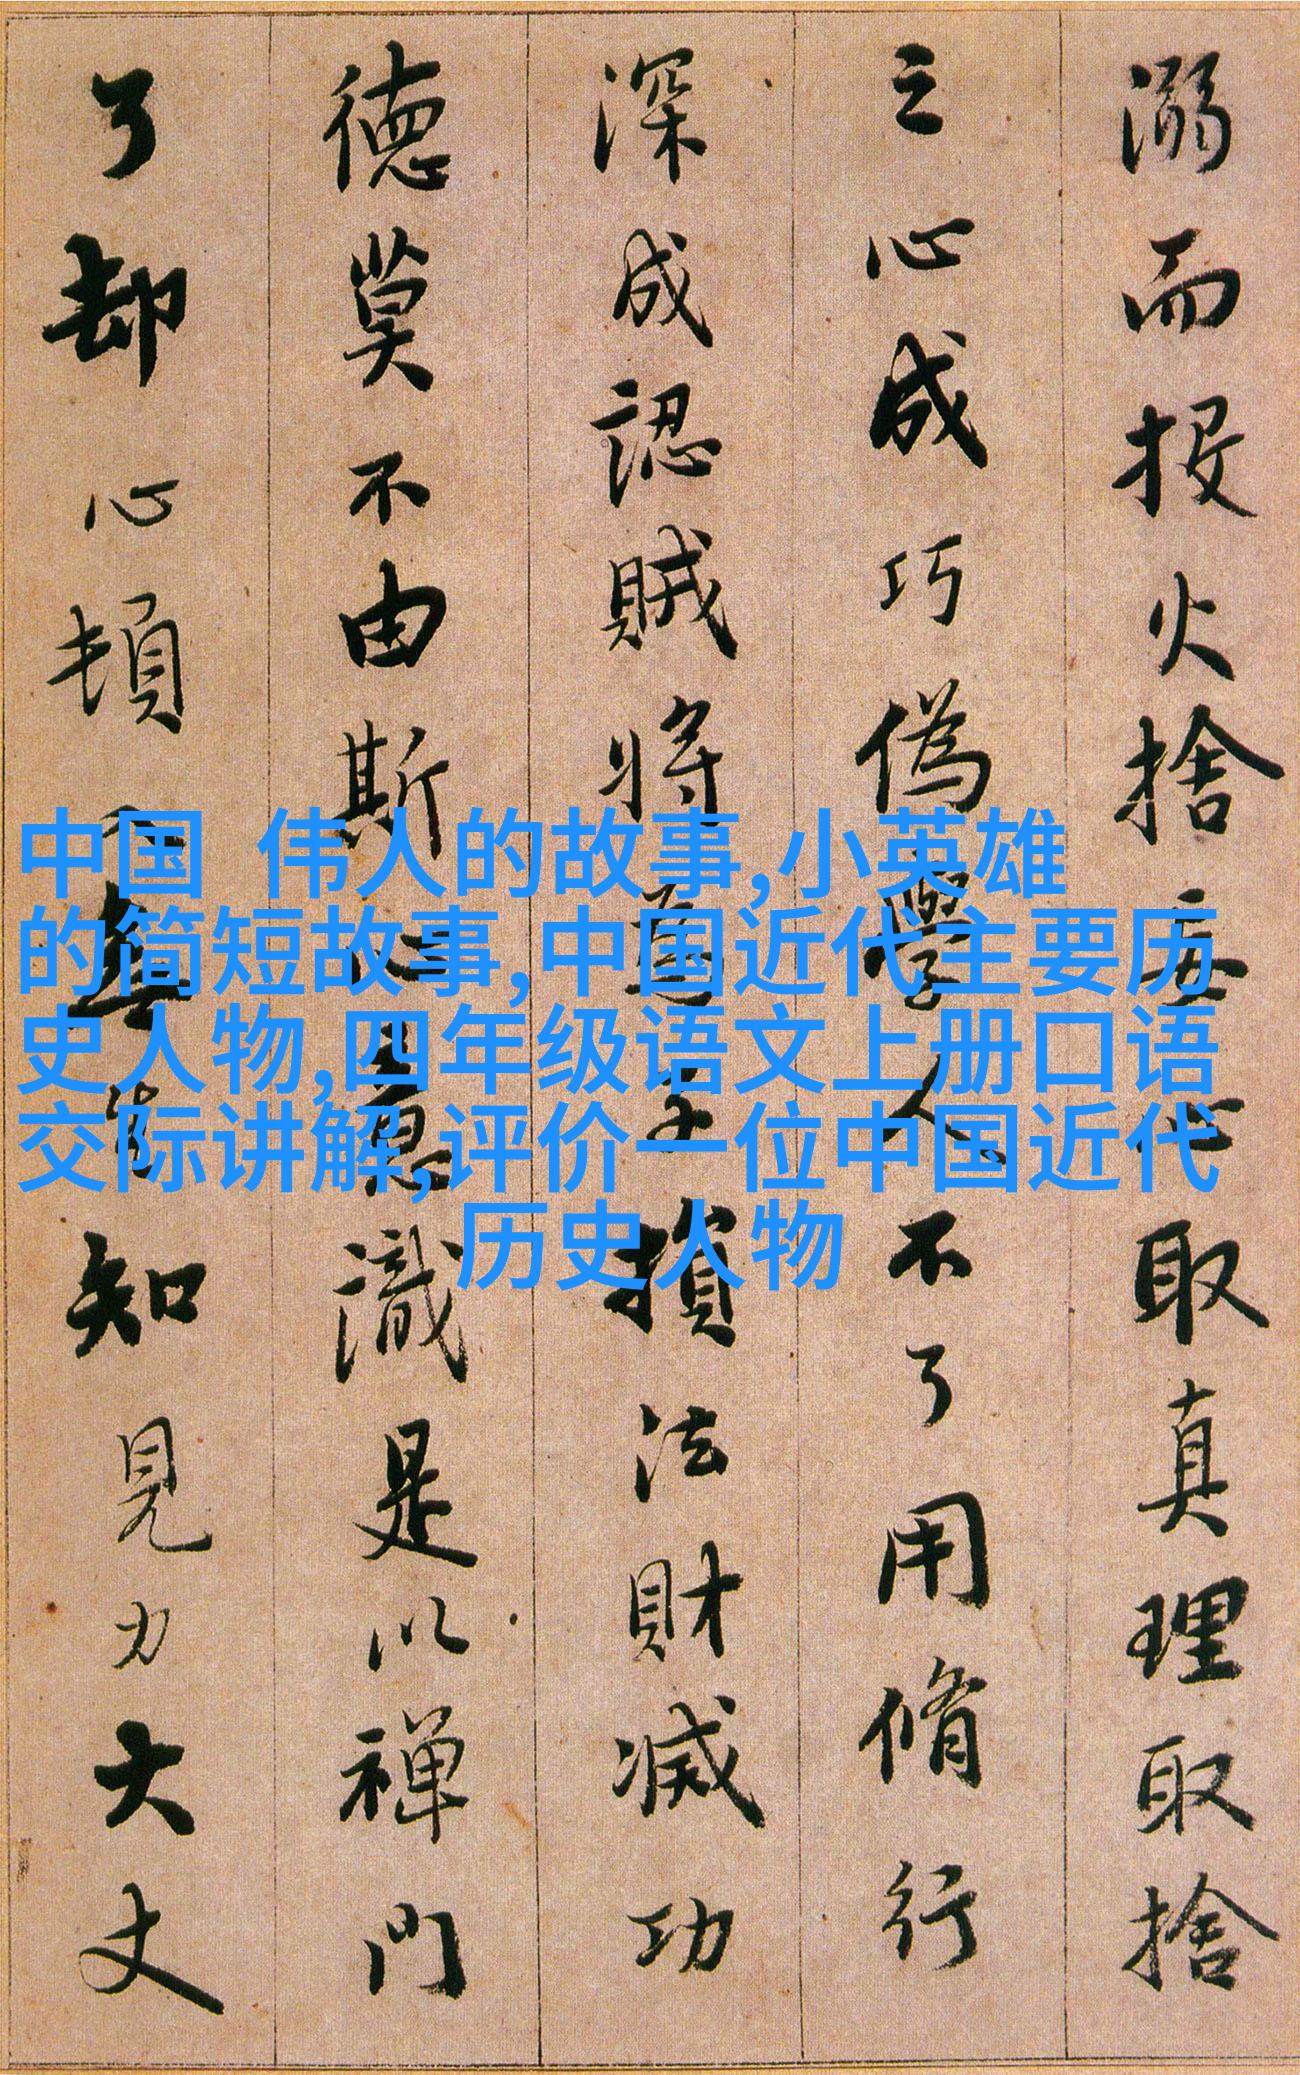 溺而投火捨妄心取真理取捨
之心成巧偽學人不了用脩行
深成認賊將為子損法財滅功
德莫不由斯心意識是以禪門
了却心頓入無生知見力大丈
中国 伟人的故事,小英雄
的简短故事,中国近代主要历
史人物,四年级语文上册口语
交际讲解,评价一位中国近代
历史人物